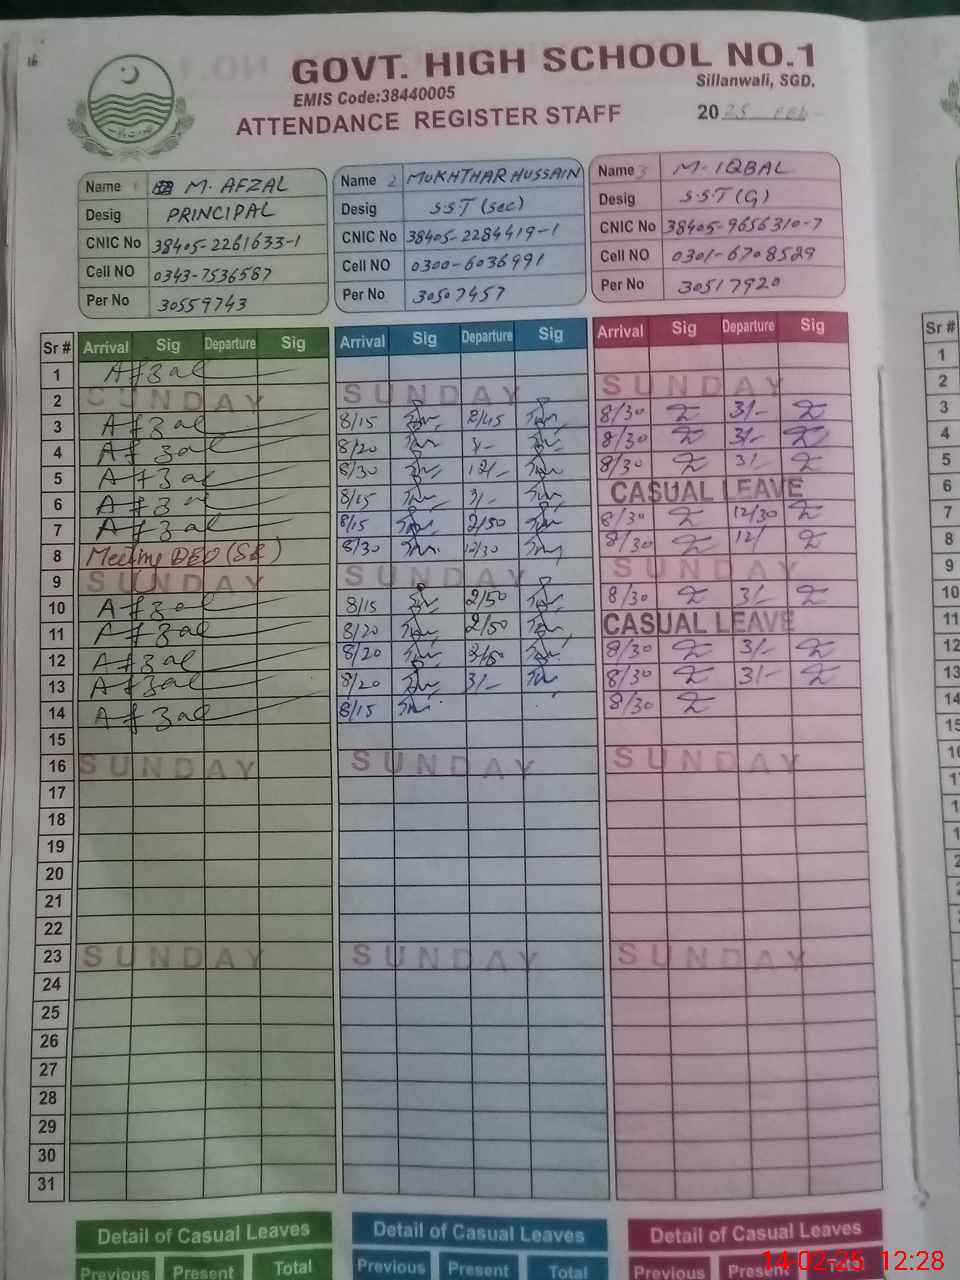 16
GOVT. HIGH SCHOOL NO.1
Sillanwali, SGD.
EMIS Code:38440005
ATTENDANCE REGISTER STAFF
2025 Feb
Name 1 M. AFZAL
Desig PRINCIPAL
CNIC No 38405-2261633-1
Cell NO 0343-7536587
Per No 30559743
Name 2 MUKHTHAR HUSSAIN
Desig S.S.T (Sec)
CNIC No 38405-2284419-1
Cell NO 0300-6036991
Per No 30507457
Name 3 M. IQBAL
Desig S.S.T (G)
CNIC No 38405-9656310-7
Cell NO 0301-6708529
Per No 30517920
Sr # Arrival Sig Departure Sig Arrival Sig Departure Sig Arrival Sig Departure Sig Sr #
1 Afzal 1
2 SUNDAY SUNDAY SUNDAY 2
3 Afzal 8/15 2/45 8/30 3/- 3
4 Afzal 8/20 3/- 8/30 3/- 4
5 Afzal 8/30 12/- 8/30 3/- 5
6 Afzal 8/15 3/- CASUAL LEAVE 6
7 Afzal 8/15 2/50 8/30 12/30 7
8 Meeting DEO (SE) 8/30 12/30 8/30 12/ 8
9 SUNDAY SUNDAY SUNDAY 9
10 Afzal 8/15 2/50 8/30 3/- 10
11 Afzal 8/20 2/50 CASUAL LEAVE 11
12 Afzal 8/20 8/30 3/- 12
13 Afzal 8/20 3/- 8/30 3/- 13
14 Afzal 8/15 8/30 14
15 15
16 SUNDAY SUNDAY SUNDAY
17
18
19
20
21
22
23 SUNDAY SUNDAY SUNDAY
24
25
26
27
28
29
30
31
Detail of Casual Leaves Detail of Casual Leaves Detail of Casual Leaves
Previous Present Total Previous Present Total Previous Present Total
14-02-25 12:28